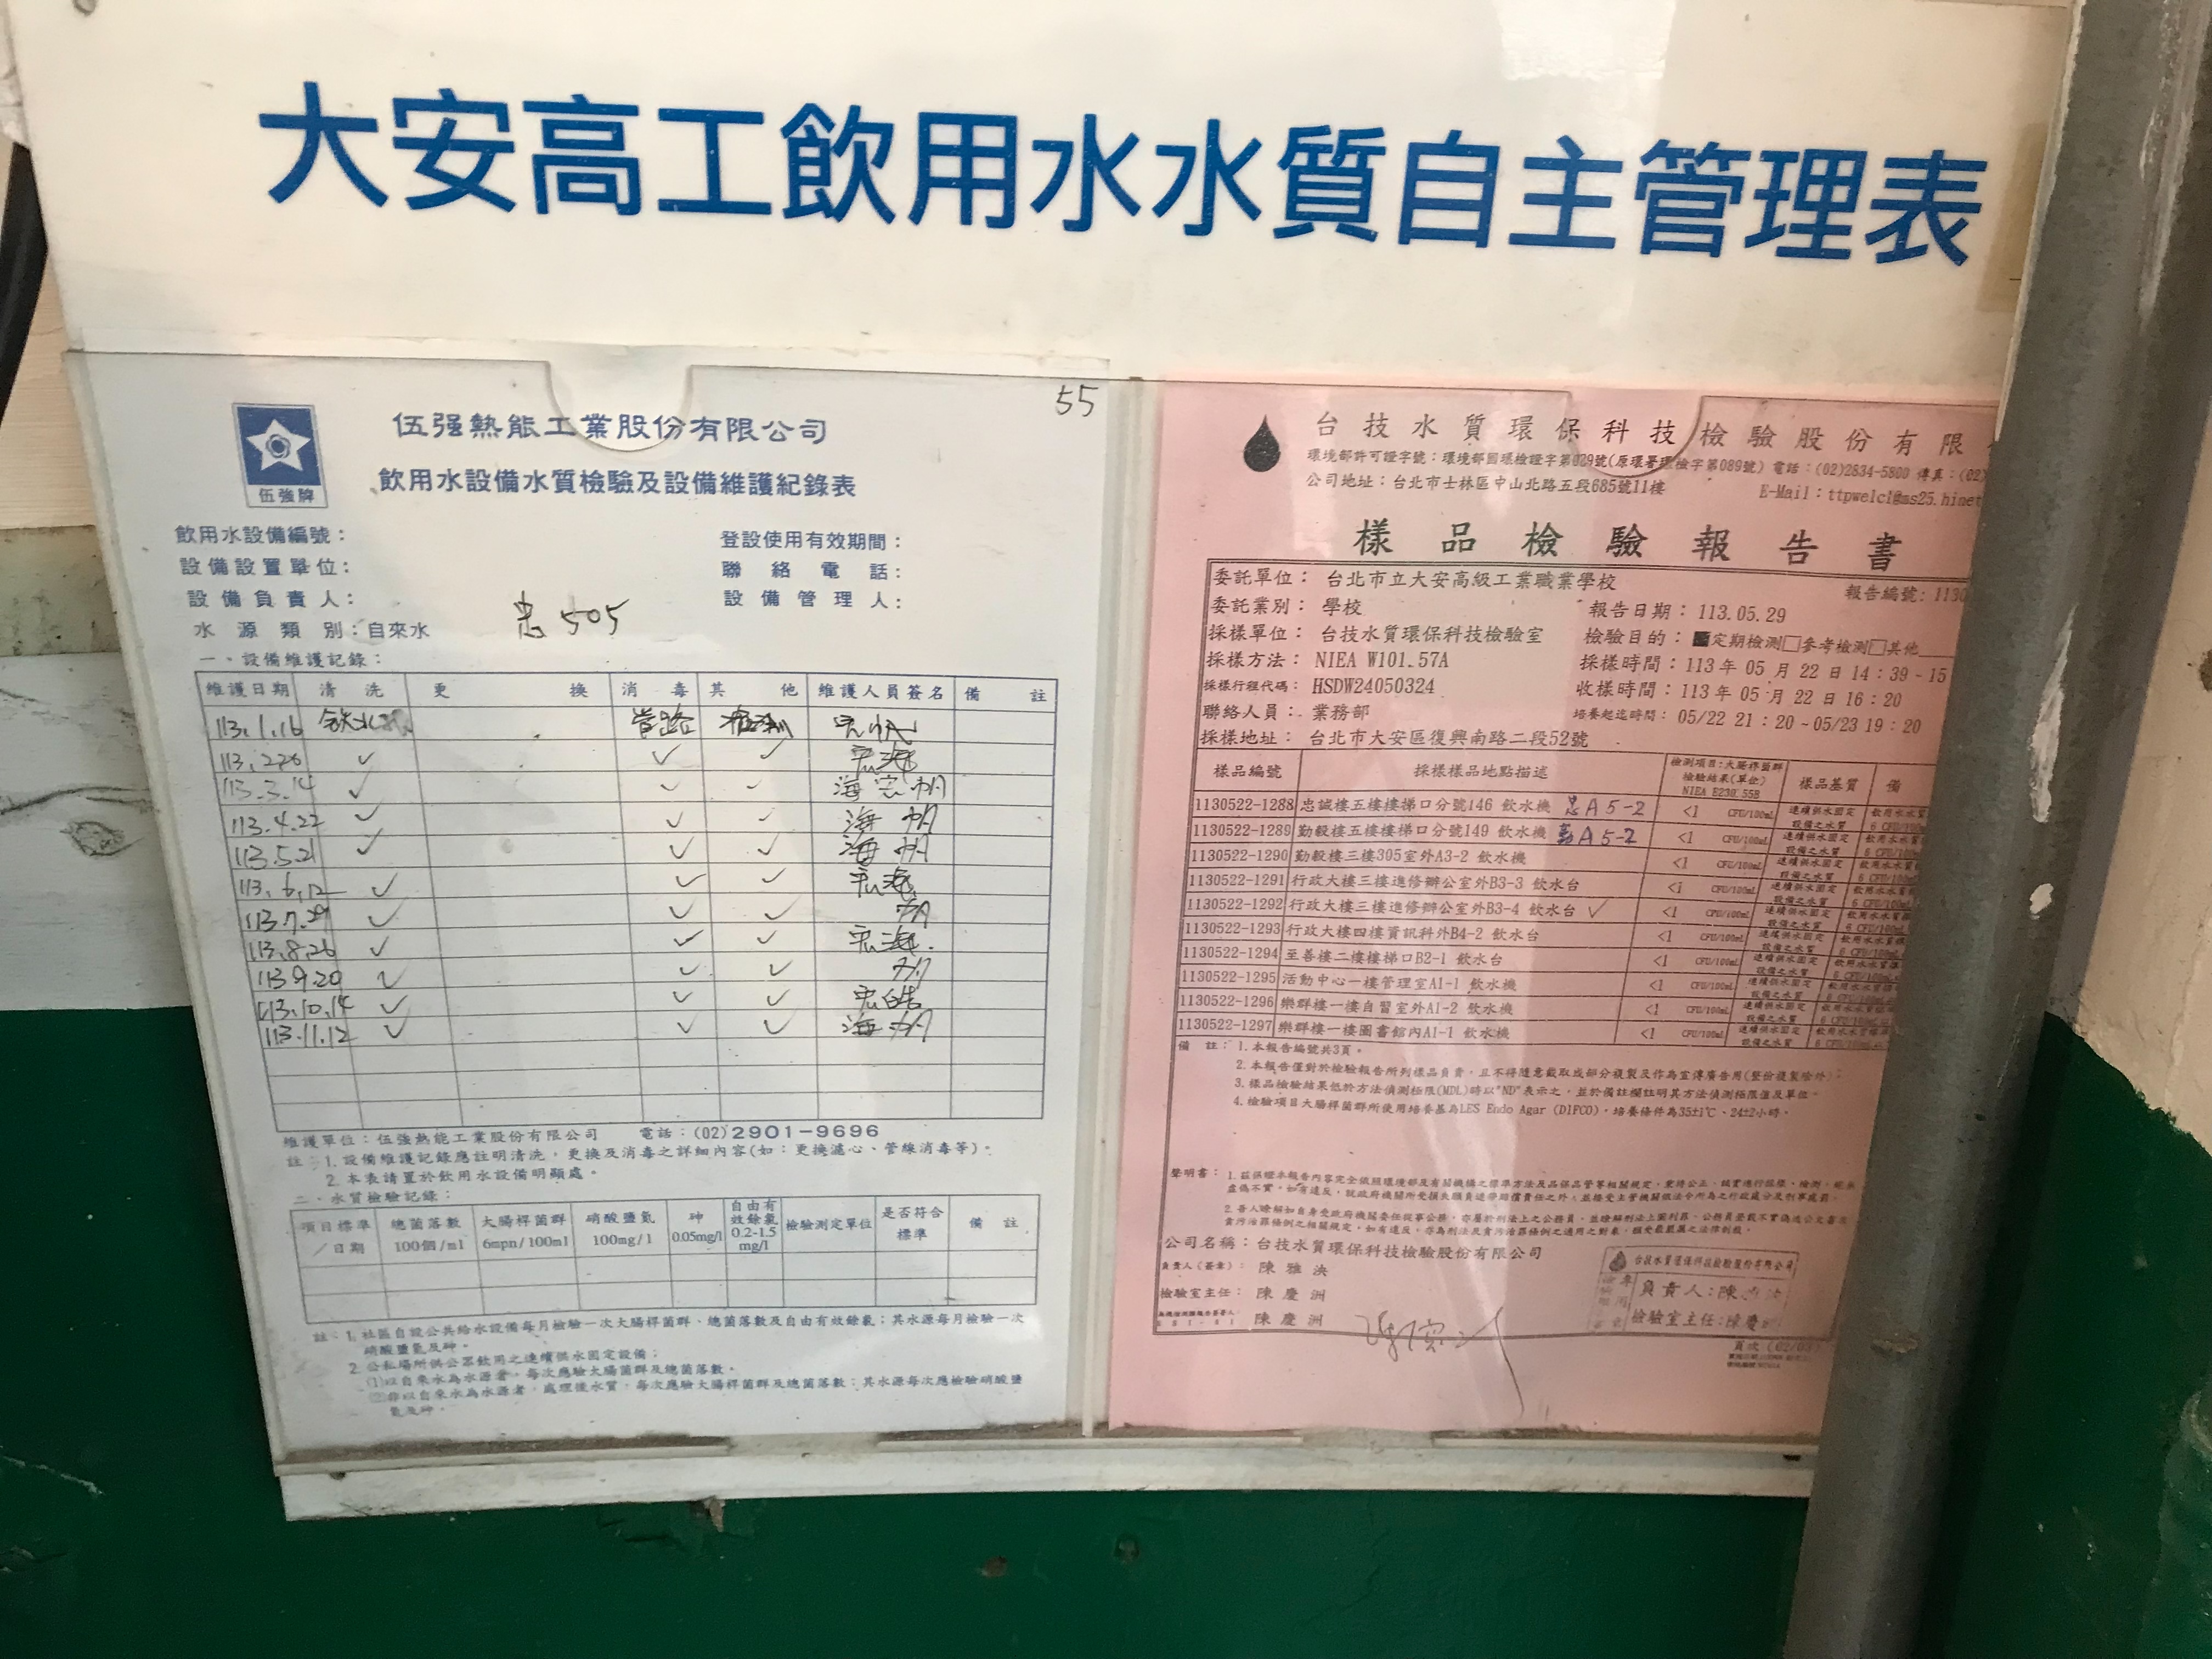 大安高工飲用水水質自主管理表
55
伍強牌
伍强熱能工業股份有限公司
飲用水設備水質檢驗及設備維護紀錄表
飲用水設備編號：
登設使用有效期間：
設備設置單位：
聯絡電話：
設備負責人：
設備管理人：
水源類別：自來水
忠505
一、設備維護記錄：
維護日期 清洗 更換 消毒 其他 維護人員簽名 備註
113.1.16 管路
113.2.26 ✓ ✓ ✓
113.3.14 ✓ ✓ ✓
113.4.22 ✓ ✓ ✓ 海 帆
113.5.21 ✓ ✓ ✓ 海 帆
113.6.12 ✓ ✓ ✓
113.7.29 ✓ ✓ ✓ 帆
113.8.26 ✓ ✓ ✓
113.9.20 ✓ ✓ ✓
113.10.14 ✓ ✓ ✓
113.11.12 ✓ ✓ ✓ 海 帆
維護單位：伍強熱能工業股份有限公司 電話：(02)2901-9696
註：1. 設備維護記錄應註明清洗，更換及消毒之詳細內容(如：更換濾心、管線消毒等)。
2. 本表請置於飲用水設備明顯處。
二、水質檢驗記錄：
項目標準／日期 總菌落數 100個/ml 大腸桿菌群 6mpn/100ml 硝酸鹽氮 100mg/l 砷 0.05mg/l 自由有效餘氯 0.2-1.5 mg/l 檢驗測定單位 是否符合標準 備註
註：1. 社區自設公共給水設備每月檢驗一次大腸桿菌群、總菌落數及自由有效餘氯；其水源每月檢驗一次
硝酸鹽氮及砷。
2. 公私場所供公眾飲用之連續供水固定設備：
(1)以自來水為水源者，每次應驗大腸菌群及總菌落數。
(2)非以自來水為水源者，處理後水質，每次應驗大腸桿菌群及總菌落數；其水源每次應檢驗硝酸鹽
氮及砷。
台技水質環保科技檢驗股份有限
環境部許可證字號：環境部國環檢證字第029號(原環署環檢字第089號) 電話：(02)2834-5800 傳真：(02)
公司地址：台北市士林區中山北路五段685號11樓 E-Mail：ttpwelcl@ms25.hinet
樣品檢驗報告書
委託單位：台北市立大安高級工業職業學校 報告編號：1130
委託業別：學校 報告日期：113.05.29
採樣單位：台技水質環保科技檢驗室 檢驗目的：■定期檢測□參考檢測□其他
採樣方法：NIEA W101.57A 採樣時間：113年05月22日14：39-15
採樣行程代碼：HSDW24050324 收樣時間：113年05月22日16：20
聯絡人員：業務部 培養起迄時間：05/22 21：20~05/23 19：20
採樣地址：台北市大安區復興南路二段52號
樣品編號 採樣樣品地點描述 檢測項目：大腸桿菌群 檢驗結果(單位) NIEA E230.55B 樣品基質 備
1130522-1288 忠誠樓五樓樓梯口分號146 飲水機 忠A5-2 <1 CFU/100mL 連續供水固定設備之水質
1130522-1289 勤毅樓五樓樓梯口分號149 飲水機 勤A5-2 <1 CFU/100mL 連續供水固定設備之水質
1130522-1290 勤毅樓三樓305室外A3-2 飲水機 <1 CFU/100mL 連續供水固定設備之水質
1130522-1291 行政大樓三樓進修辦公室外B3-3 飲水台 <1 CFU/100mL 連續供水固定設備之水質
1130522-1292 行政大樓三樓進修辦公室外B3-4 飲水台 ✓ <1 CFU/100mL 連續供水固定設備之水質
1130522-1293 行政大樓四樓資訊科外B4-2 飲水台 <1 CFU/100mL 連續供水固定設備之水質
1130522-1294 至善樓二樓樓梯口B2-1 飲水台 <1 CFU/100mL 連續供水固定設備之水質
1130522-1295 活動中心一樓管理室A1-1 飲水機 <1 CFU/100mL 連續供水固定設備之水質
1130522-1296 樂群樓一樓自習室外A1-2 飲水機 <1 CFU/100mL 連續供水固定設備之水質
1130522-1297 樂群樓一樓圖書館內A1-1 飲水機 <1 CFU/100mL 連續供水固定設備之水質
備註：1. 本報告編號共3頁。
2. 本報告僅對於檢驗報告所列樣品負責，且不得隨意截取或部分複製及作為宣傳廣告用(整份複製除外)；
3. 樣品檢驗結果低於方法偵測極限(MDL)時以"ND"表示之，並於備註欄註明其方法偵測極限值及單位。
4. 檢驗項目大腸桿菌群所使用培養基為LES Endo Agar (DIFCO)，培養條件為35±1℃、24±2小時。
聲明書：
公司名稱：台技水質環保科技檢驗股份有限公司
負責人(簽章)：陳雅泱
檢驗室主任：陳慶洲
陳慶洲
台技水質環保科技檢驗股份有限公司
負責人：陳
檢驗室主任：陳慶
頁次(02/03)